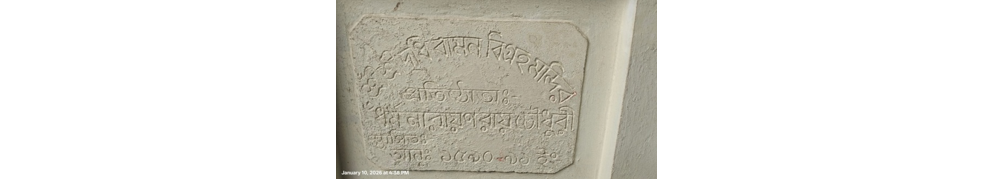 শ্রী শ্রী দধি রামন বিগ্রহ মন্দির
প্রতিষ্ঠাতাঃ-
নারায়ণ রায় চৌধুরী
স্থাপিতঃ
আনুঃ ১৫৯০-৯১ ইং
January 10, 2026 at 4:58 PM